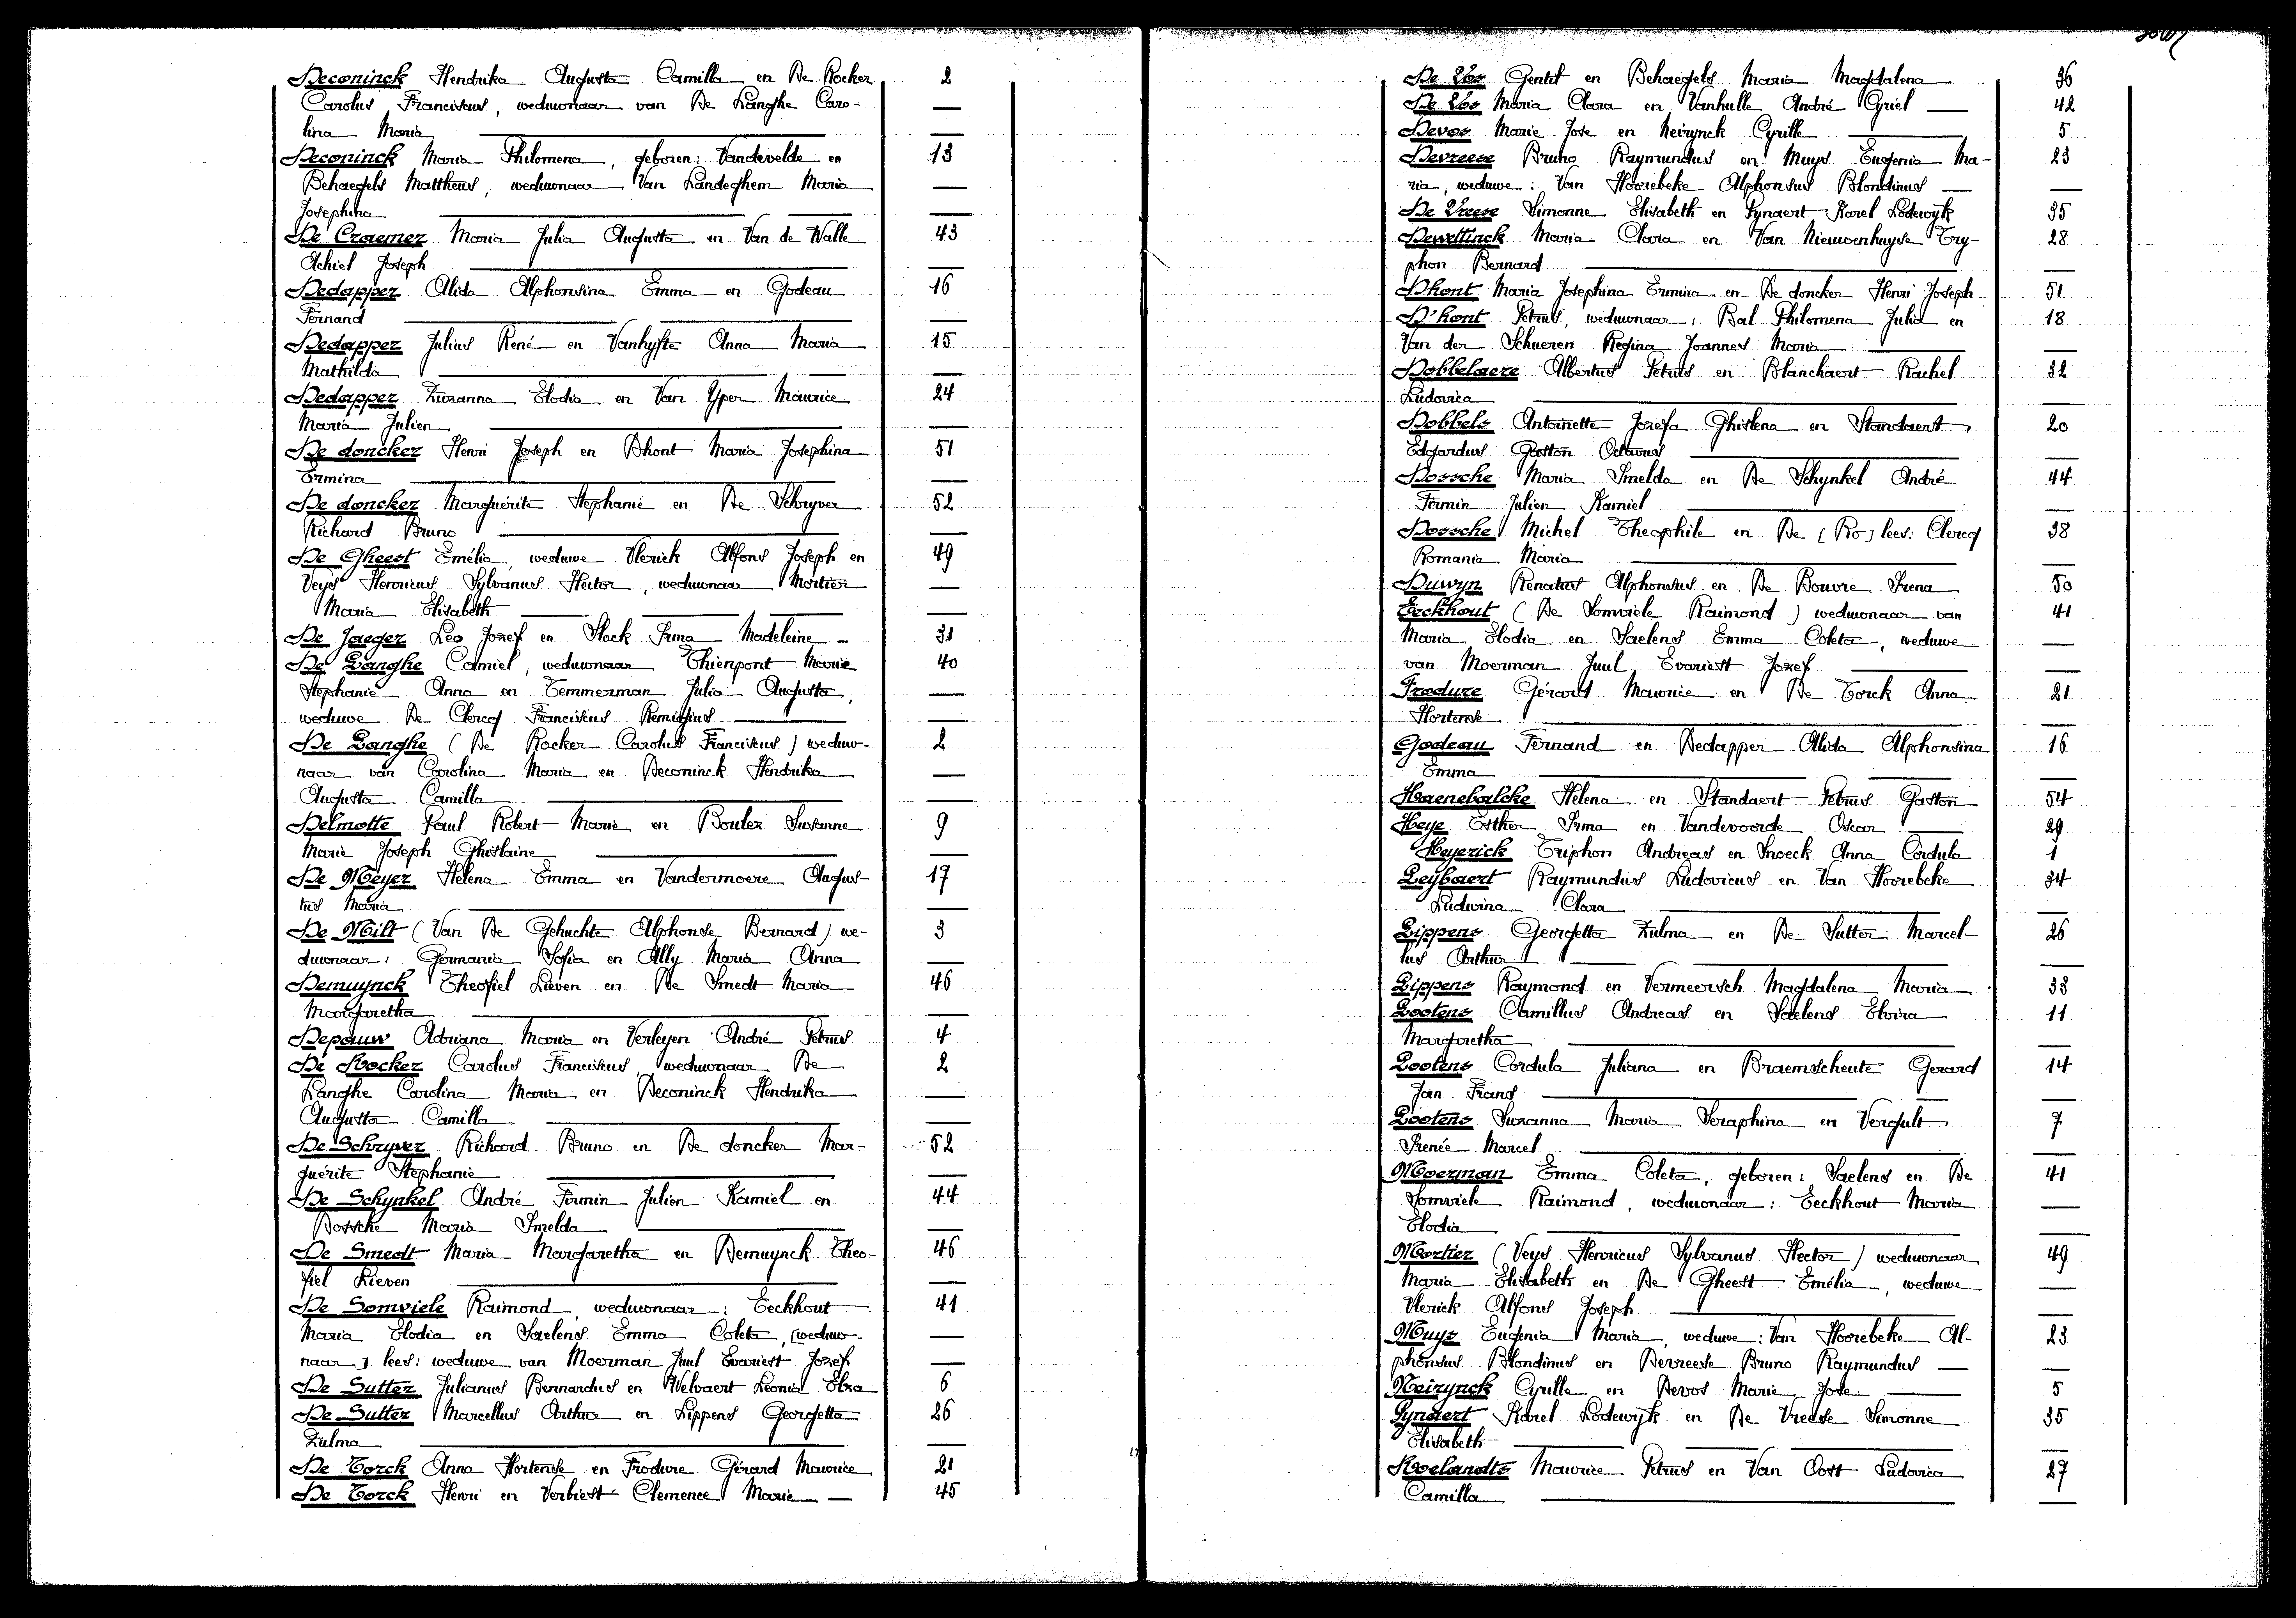 Deconinck Hendrika Augusta Camilla en De Rocker 2
Carolus Franciscus, weduwnaar van De Langhe Caro-
lina Maria
Deconinck Maria Philomena, geboren: Vandevelde en 13
Behaegels Mattheus, weduwnaar Van Landeghem Maria
Josephina
De Craemer Maria Julia Augusta en Van de Walle 43
Achiel Joseph
Dedapper Alida Alphonsina Emma en Godeau 16
Fernand
Dedapper Julius René en Vanhyfte Anna Maria 15
Mathilda
Dedapper Zuzanna Elodia en Van Yper Maurice 24
Maria Julien
De doncker Henri Joseph en Dhont Maria Josephina 51
Ermina
De doncker Marguérite Stephanie en De Schryver 52
Richard Bruno
De Gheest Emélia, weduwe Vlerick Alfons Joseph en 49
Veys Henricus Sylvanus Hector, weduwnaar Mortier
Maria Elisabeth
De Jaeger Leo Jozef en Stock Irma Madeleine - 31
De Langhe Camiel, weduwnaar Thienpont Marie 40
Stephanie Anna en Temmerman Julia Augusta,
weduwe De Clercq Franciskus Remigius
De Langhe (De Rocker Carolus Franciscus) weduw- 2
naar van Carolina Maria en Deconinck Hendrika
Augusta Camilla
Delmotte Paul Robert Marie en Boulez Suzanne 9
Marie Joseph Ghislaine
De Meyer Helena Emma en Vandermoere Augus- 17
tus Maria
De Milt (Van De Gehuchte Alphonse Bernard) we- 3
duwnaar: Germania Sofia en Ally Maria Anna
Demuynck Theofiel Lieven en De Smedt Maria 46
Margaretha
Depauw Adriana Maria en Verleyen André Petrus 4
De Rocker Carolus Franciscus, weduwnaar De 2
Langhe Carolina Maria en Deconinck Hendrika
Augusta Camilla
De Schryver Richard Bruno en De doncker Mar- 52
guérite Stephanie
De Schynkel André Firmin Julien Kamiel en 44
Dossche Maria Imelda
De Smedt Maria Margaretha en Demuynck Theo- 46
fiel Lieven
De Somviele Raimond, weduwnaar: Eeckhout 41
Maria Elodia en Saelens Emma Coleta, [weduw-
naar] lees: weduwe van Moerman Juul Evariest Jozef
De Sutter Julianus Bernardus en Welvaert Leonia Elza 6
De Sutter Marcellus Arthur en Lippens Georgetta 26
Zulma
De Torck Anna Hortense en Frodure Gérard Maurice 21
De Torck Henri en Verbiest Clemence Marie 45
De Vos Gentil en Behaegels Maria Magdalena 36
De Vos Maria Clara en Vanhulle André Cyriel 42
Devos Marie Jose en Neirynck Cyrille 5
Devreese Bruno Raymundus en Muys Eugenia Ma- 23
ria, weduwe: Van Hoorebeke Alphonsus Blondinus
De Vreese Simonne Elisabeth en Pynaert Karel Lodewyk 35
Dewettinck Maria Clara en Van Nieuwenhuyse Try- 28
phon Bernard
Dhont Maria Josephina Ermina en De doncker Henri Joseph 51
D'hont Petrus, weduwnaar, Bal Philomena Julia en 18
Van der Schueren Regina Joannes Maria
Dobbelaere Albertus Petrus en Blanchaert Rachel 32
Ludovica
Dobbels Antoinette Jozefa Ghislena en Standaert 20
Edgardus Gaston Octavus
Dossche Maria Imelda en De Schynkel André 44
Firmin Julien Kamiel
Dossche Michel Theophile en De [Ro] lees: Clercq 38
Romania Maria
Duwyn Renatus Alphonsius en De Bouvre Irena 50
Eeckhout (De Somviele Raimond) weduwnaar van 41
Maria Elodia en Saelens Emma Coleta, weduwe
van Moerman Juul Evariest Jozef
Frodure Gérard Maurice en De Torck Anna 21
Hortense
Godeau Fernand en Dedapper Alida Alphonsina 16
Emma
Haenebalcke Helena en Standaert Petrus Gaston 54
Heye Esther Irma en Vandevoorde Oscar 29
Heyerick Triphon Andreas en Snoeck Anna Cordula 1
Leybaert Raymundus Ludovicus en Van Hoorebeke 34
Ludwina Clara
Lippens Georgetta Zulma en De Sutter Marcel- 26
lus Arthur
Lippens Raymond en Vermeersch Magdalena Maria 33
Lootens Camillus Andreas en Saelens Elvira 11
Margaretha
Lootens Cordula Juliana en Braemscheute Gerard 14
Jan Frans
Lootens Suzanna Maria Seraphina en Vergult 7
Irenée Marcel
Moerman Emma Coleta, geboren: Saelens en De 41
Somviele Raimond, weduwnaar: Eeckhout Maria
Elodia
Mortier (Veys Henricus Sylvanus Hector) weduwnaar 49
Maria Elisabeth en De Gheest Emélia, weduwe
Vlerick Alfons Joseph
Muys Eugenia Maria, weduwe: Van Hoorebeke Al- 23
phonsus Blondinus en Devreese Bruno Raymundus
Neirynck Cyrille en Devos Marie Jose 5
Pynaert Karel Lodewyk en De Vreese Simonne 35
Elisabeth
Roelandts Maurice Petrus en Van Oost Ludovica 27
Camilla